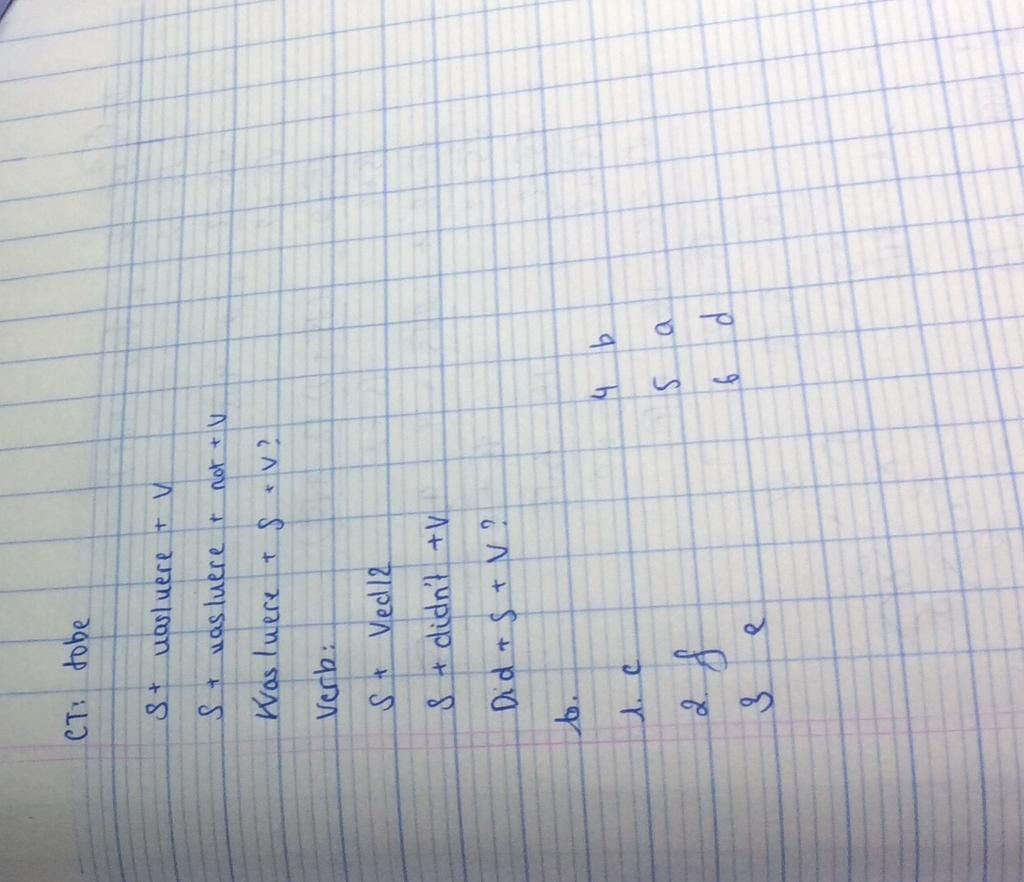 CT: tobe
S + was/were + V
S + was/were + not + V
Was/were + S + V?
Verb:
S + Ved/2
S + didn't + V
Did + S + V?
b.
1. c 4 b
2. f 5 a
3 e 6 d